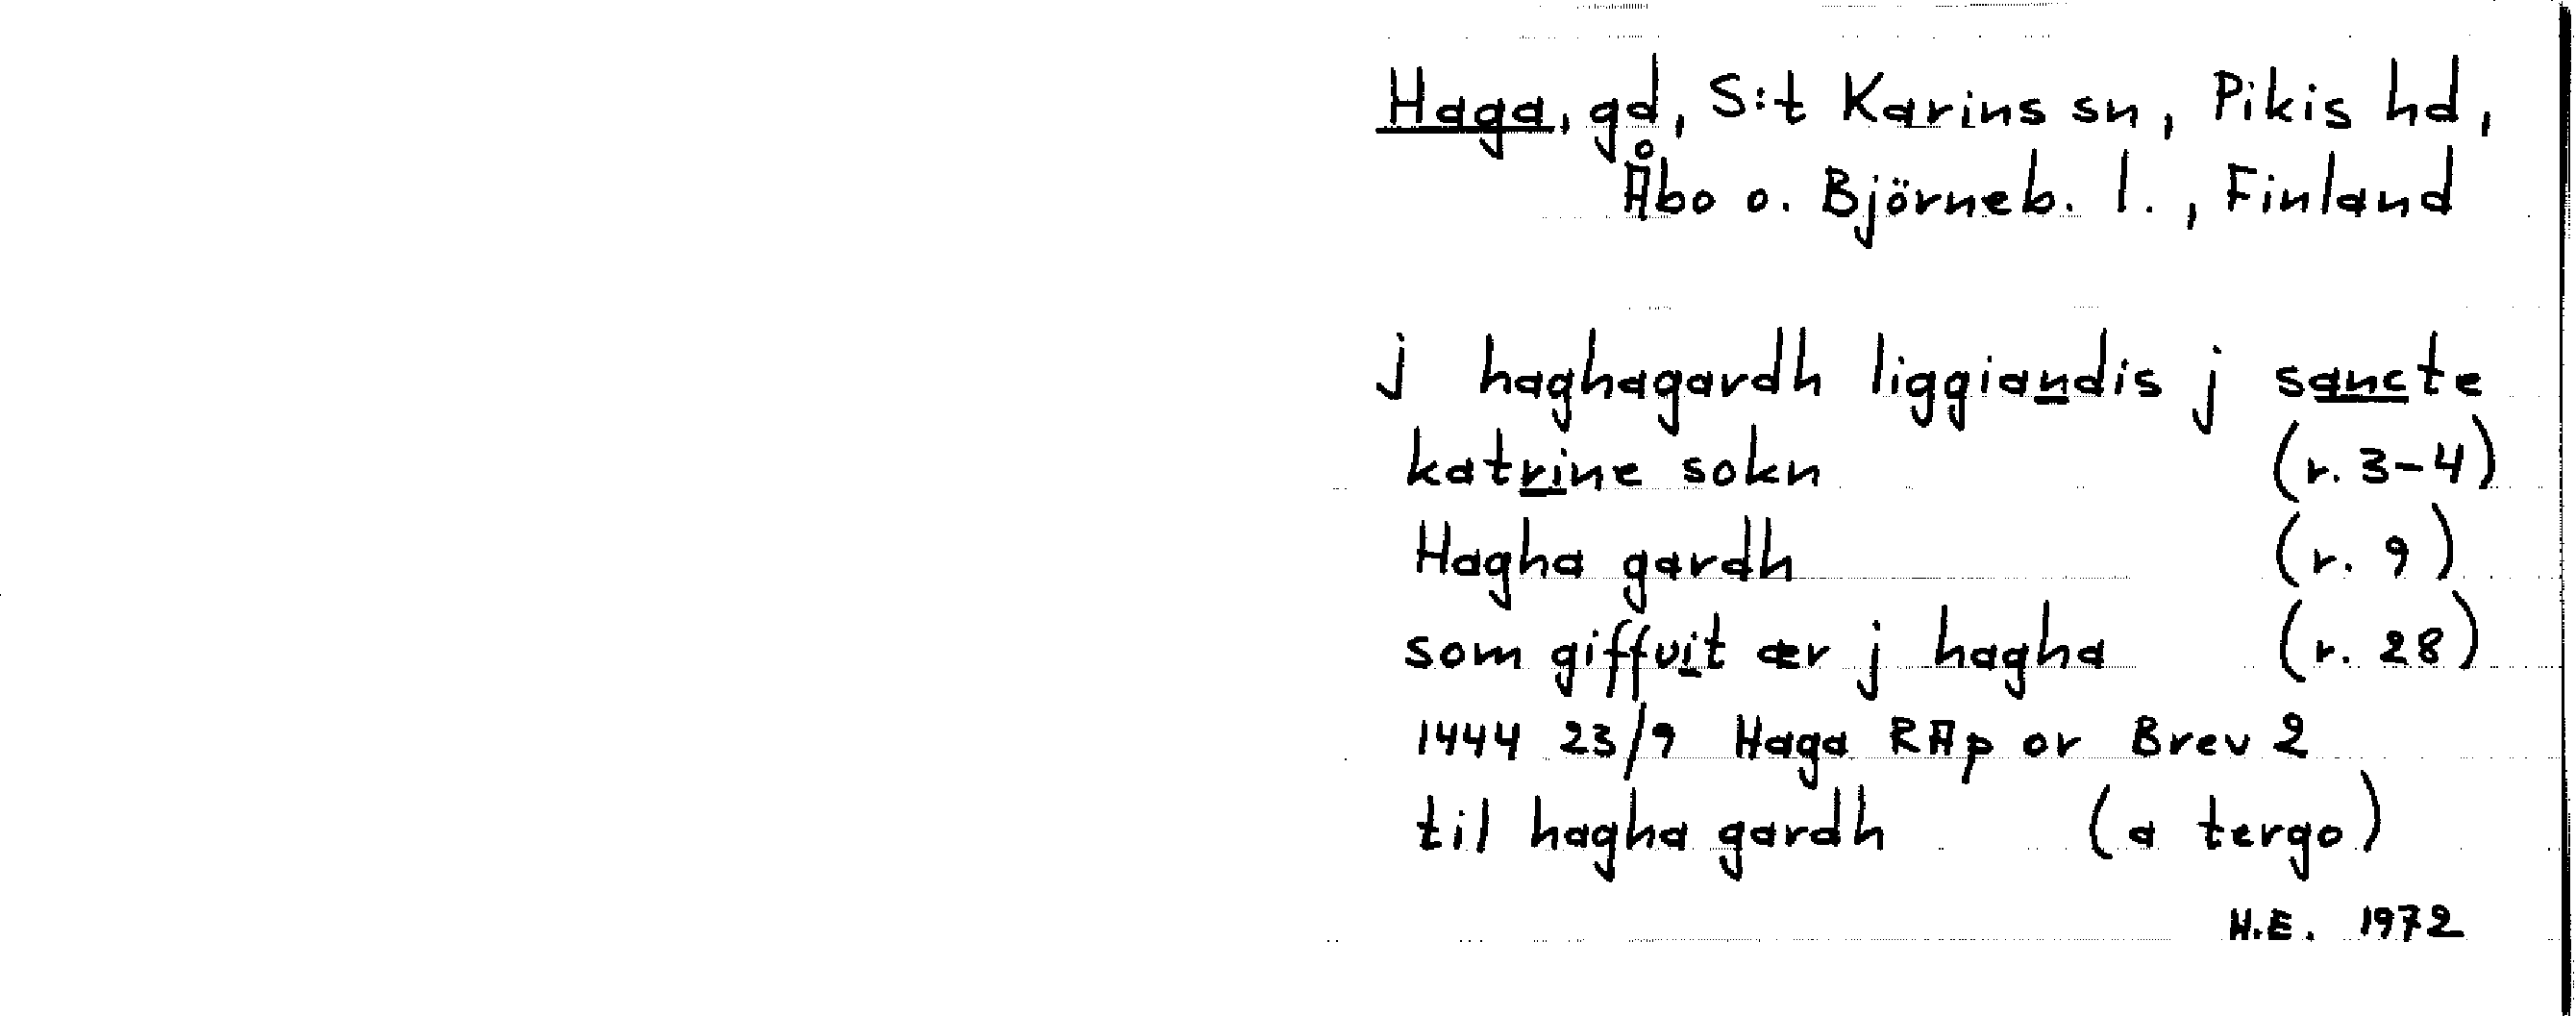 Haga, gd, S:t Karins sn, Pikis hd,
Åbo o. Björneb. l., Finland
j haghagardh liggiandis j sancte
katrine sokn (r. 3-4)
Hagha gardh (r. 9)
som giffuit ær j hagha (r. 28)
1444 23/9 Haga RAp or Brev 2
til hagha gardh (a tergo)
H.E. 1972